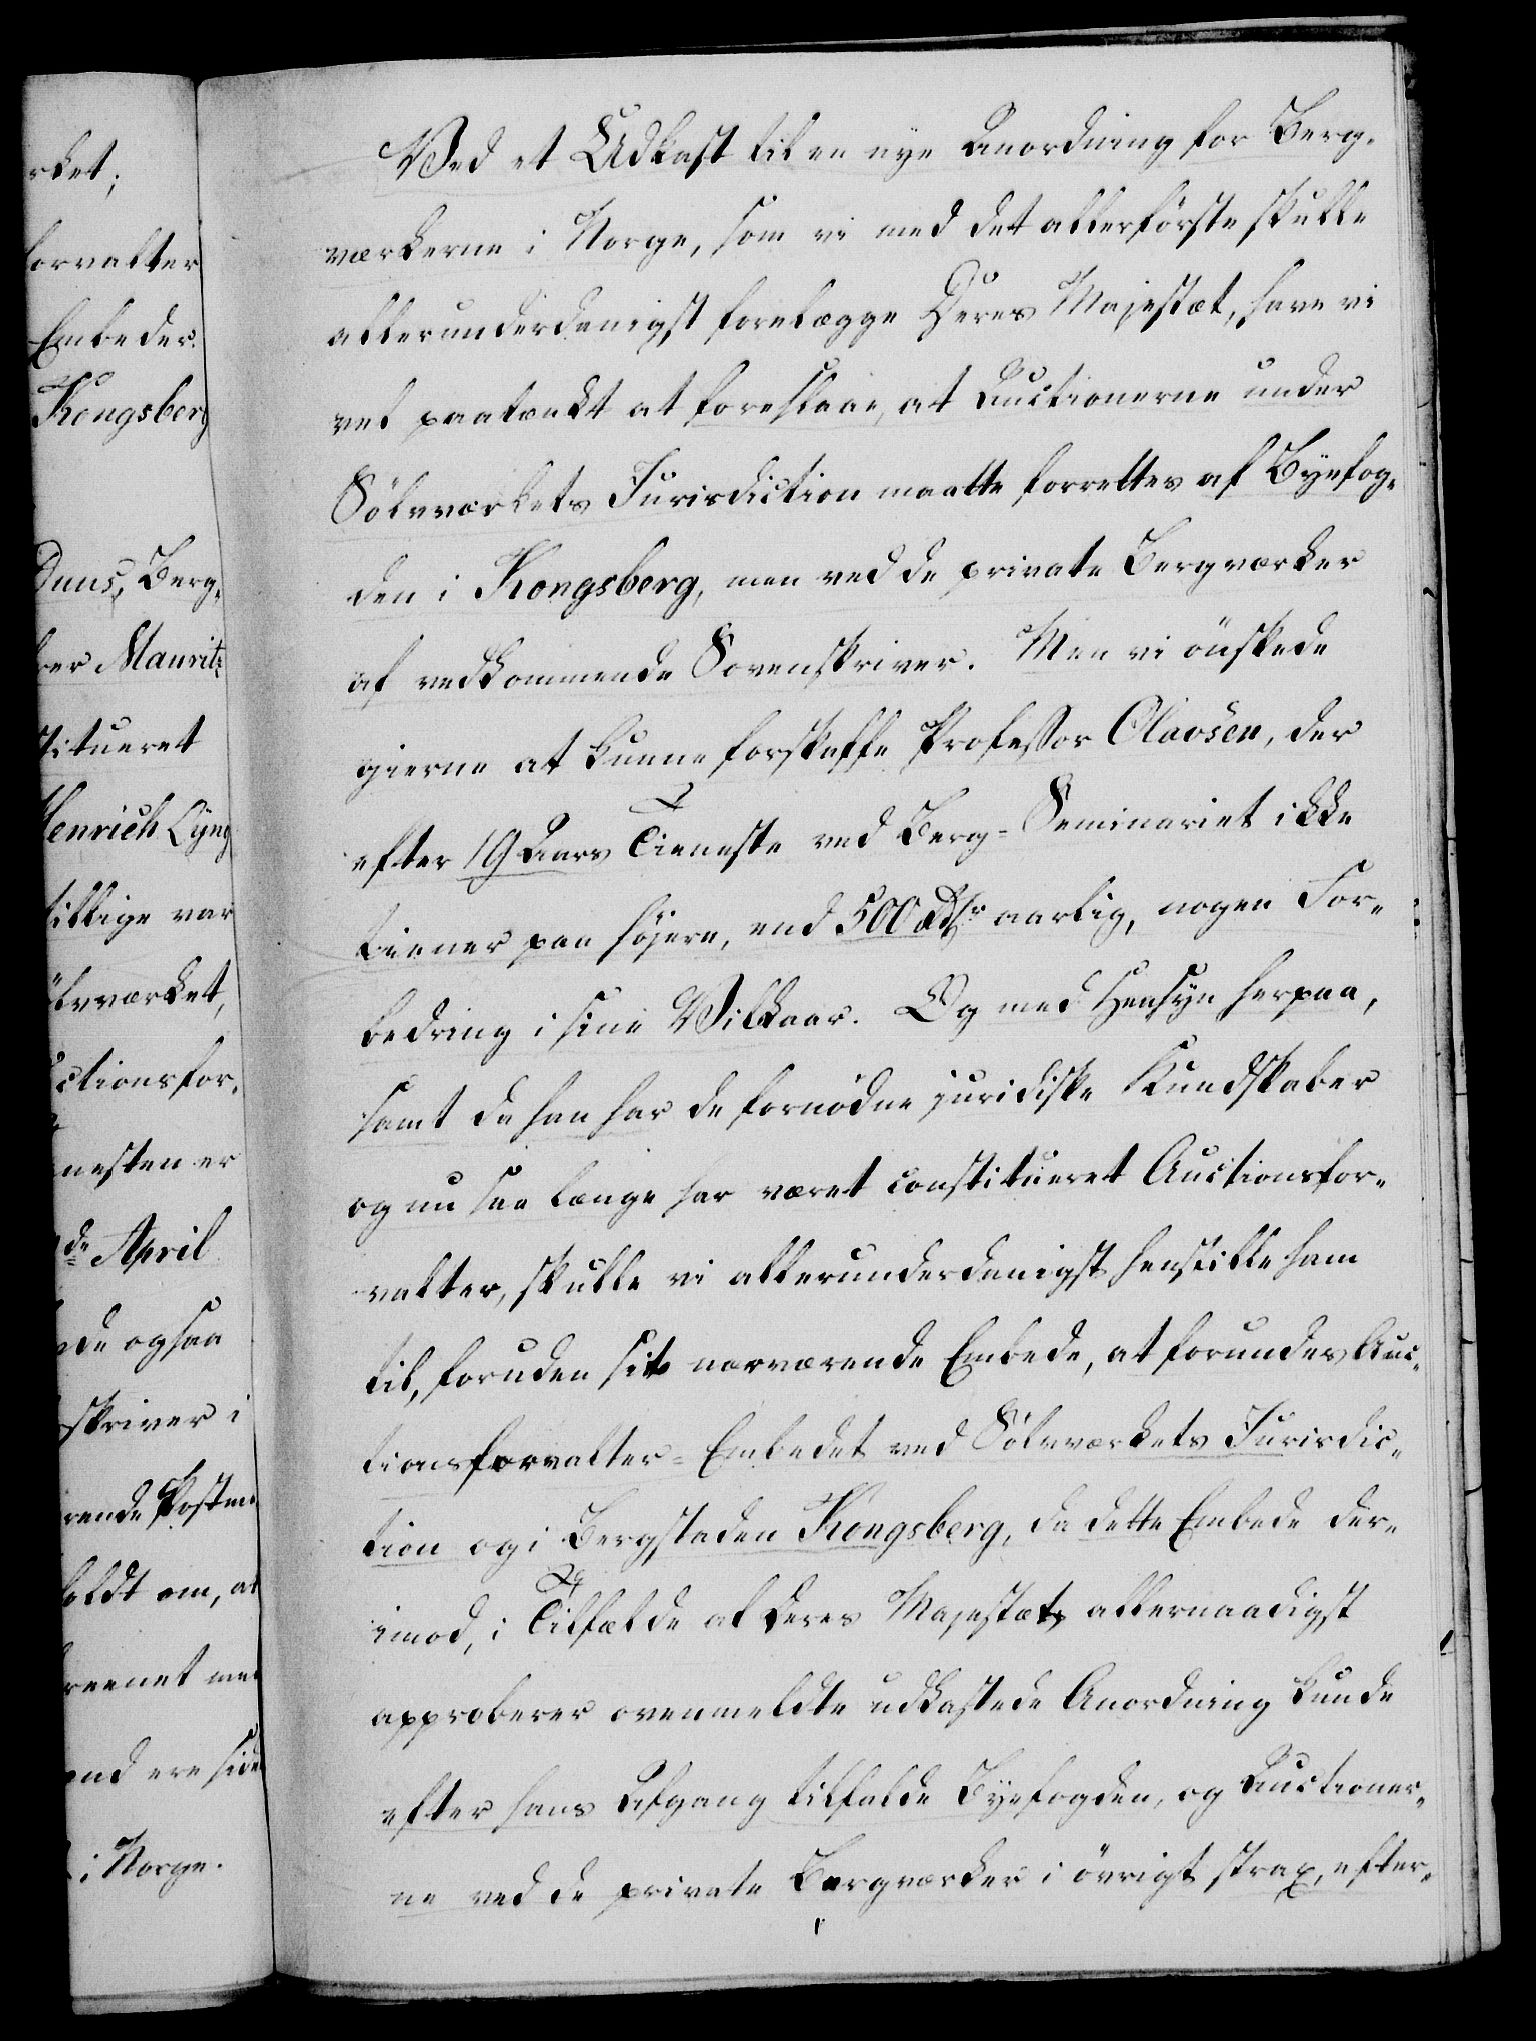 rket;
forvalter
Embeder.
Kongsberg
Duus, Berg-
ver Mauritz
stitueret
Henrich Lyng
tillige var
ölvværket,
uctionsfor-
nesten er
de April
nde ogsaa
skriver i
rende Posten
holdt om, at
reenet med
ond ere side
i Norge.
Ved et Udkast til en nye Anordning for Berg-
værkerne i Norge, som vi med det allerförste skulle
allerunderdanigst forelægge Deres Majestæt, have vi
vel paatænkt at foreslaae, at Auctionerne under
Sölvværkets Jurisdiction maatte forrettes af Byefog-
den i Kongsberg, men ved de private Bergværker
af vedkommende Sorenskriver. Men vi önskede
gierne at kunne forskaffe Professor Olavsen, der
efter 19 Aars Tieneste ved Berg-Seminariet ikke
tiener paa höjere, end 500 Rdlr aarlig, nogen For-
bedring i sine Vilkaar. Og med Hensyn herpaa,
samt da han har de fornödne juridiske Kundskaber
og nu saa længe har været constitueret Auctionsfor-
valter, skulle vi allerunderdanigst henstille ham
til, foruden sit nærværende Embede, at forundes Auc-
tionsforvalter-Embedet ved Sölvværkets Jurisdic-
tion og i Bergstaden Kongsberg, da dette Embede der-
imod, i Tilfælde at Deres Majestæt allernaadigst
approberer ovenmeldte udkastede Anordning kunde
efter hans Afgang tilfalde Byefogden, og Auctioner-
ne ved de private Bergværker i övrigt strax, efter-